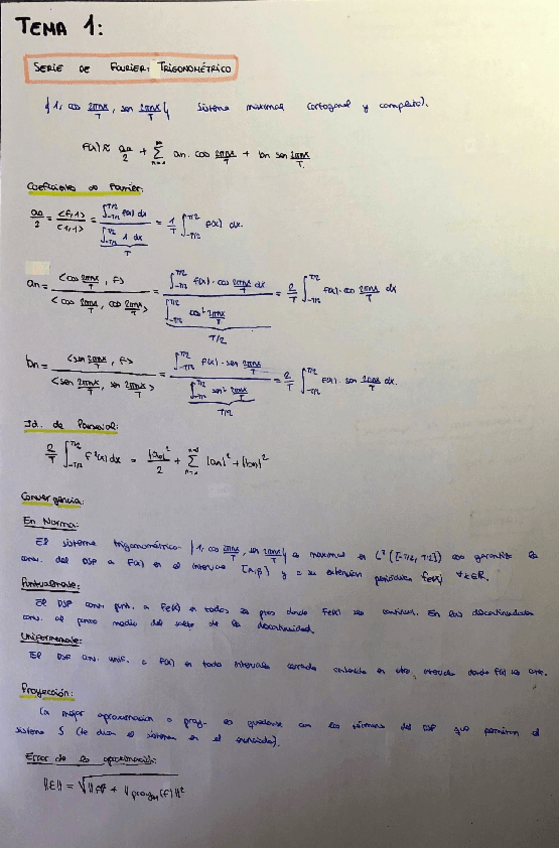 TEMA 1:
SERIE DE FOURIER: TRIGONOMÉTRICO
{1, cos 2πnx/T, sen 2πnx/T} sistema maximal (ortogonal y completo).
F(x) ≈ a0/2 + Σ_{n=1}^{∞} an · cos 2πnx/T + bn sen 2πnx/T
Coeficientes de Fourier:
a0/2 = <f,1>/<1,1> = ∫_{-T/2}^{T/2} f(x) dx / ∫_{-T/2}^{T/2} 1 dx = 1/T ∫_{-T/2}^{T/2} f(x) dx.
T
an = <cos 2πnx/T, f> / <cos 2πnx/T, cos 2πnx/T> = ∫_{-T/2}^{T/2} f(x) · cos 2πnx/T dx / ∫_{-T/2}^{T/2} cos² 2πnx/T = 2/T ∫_{-T/2}^{T/2} f(x) · cos 2πnx/T dx
T/2
bn = <sen 2πnx/T, f> / <sen 2πnx/T, sen 2πnx/T> = ∫_{-T/2}^{T/2} f(x) · sen 2πnx/T / ∫_{-T/2}^{T/2} sen² 2πnx/T = 2/T ∫_{-T/2}^{T/2} f(x) · sen 2πnx/T dx.
T/2
Id. de Parseval:
2/T ∫_{-T/2}^{T/2} f²(x) dx = |a0|²/2 + Σ |an|² + |bn|²
Convergencia:
En Norma:
El sistema trigonométrico {1, cos 2πnx/T, sen 2πnx/T} es maximal en L²([-T/2, T/2]) garantiza la
conv. del DSF a F(x) en el intervalo y a su extensión periódica
Puntualmente:
El DSF conv. punt. a en todos los ptos donde sea continua. En las discontinuidades
conv. al punto medio del salto de la discontinuidad.
Uniformemente:
El DSF conv. unif. a F(x) en todo intervalo cerrado contenido en otro intervalo donde F(x) es cont.
Proyección:
La mejor aproximación o proy. es quedarse con los términos del DSF que permiten el
sistema S (te dan el sistema en el enunciado).
Error de la aproximación: